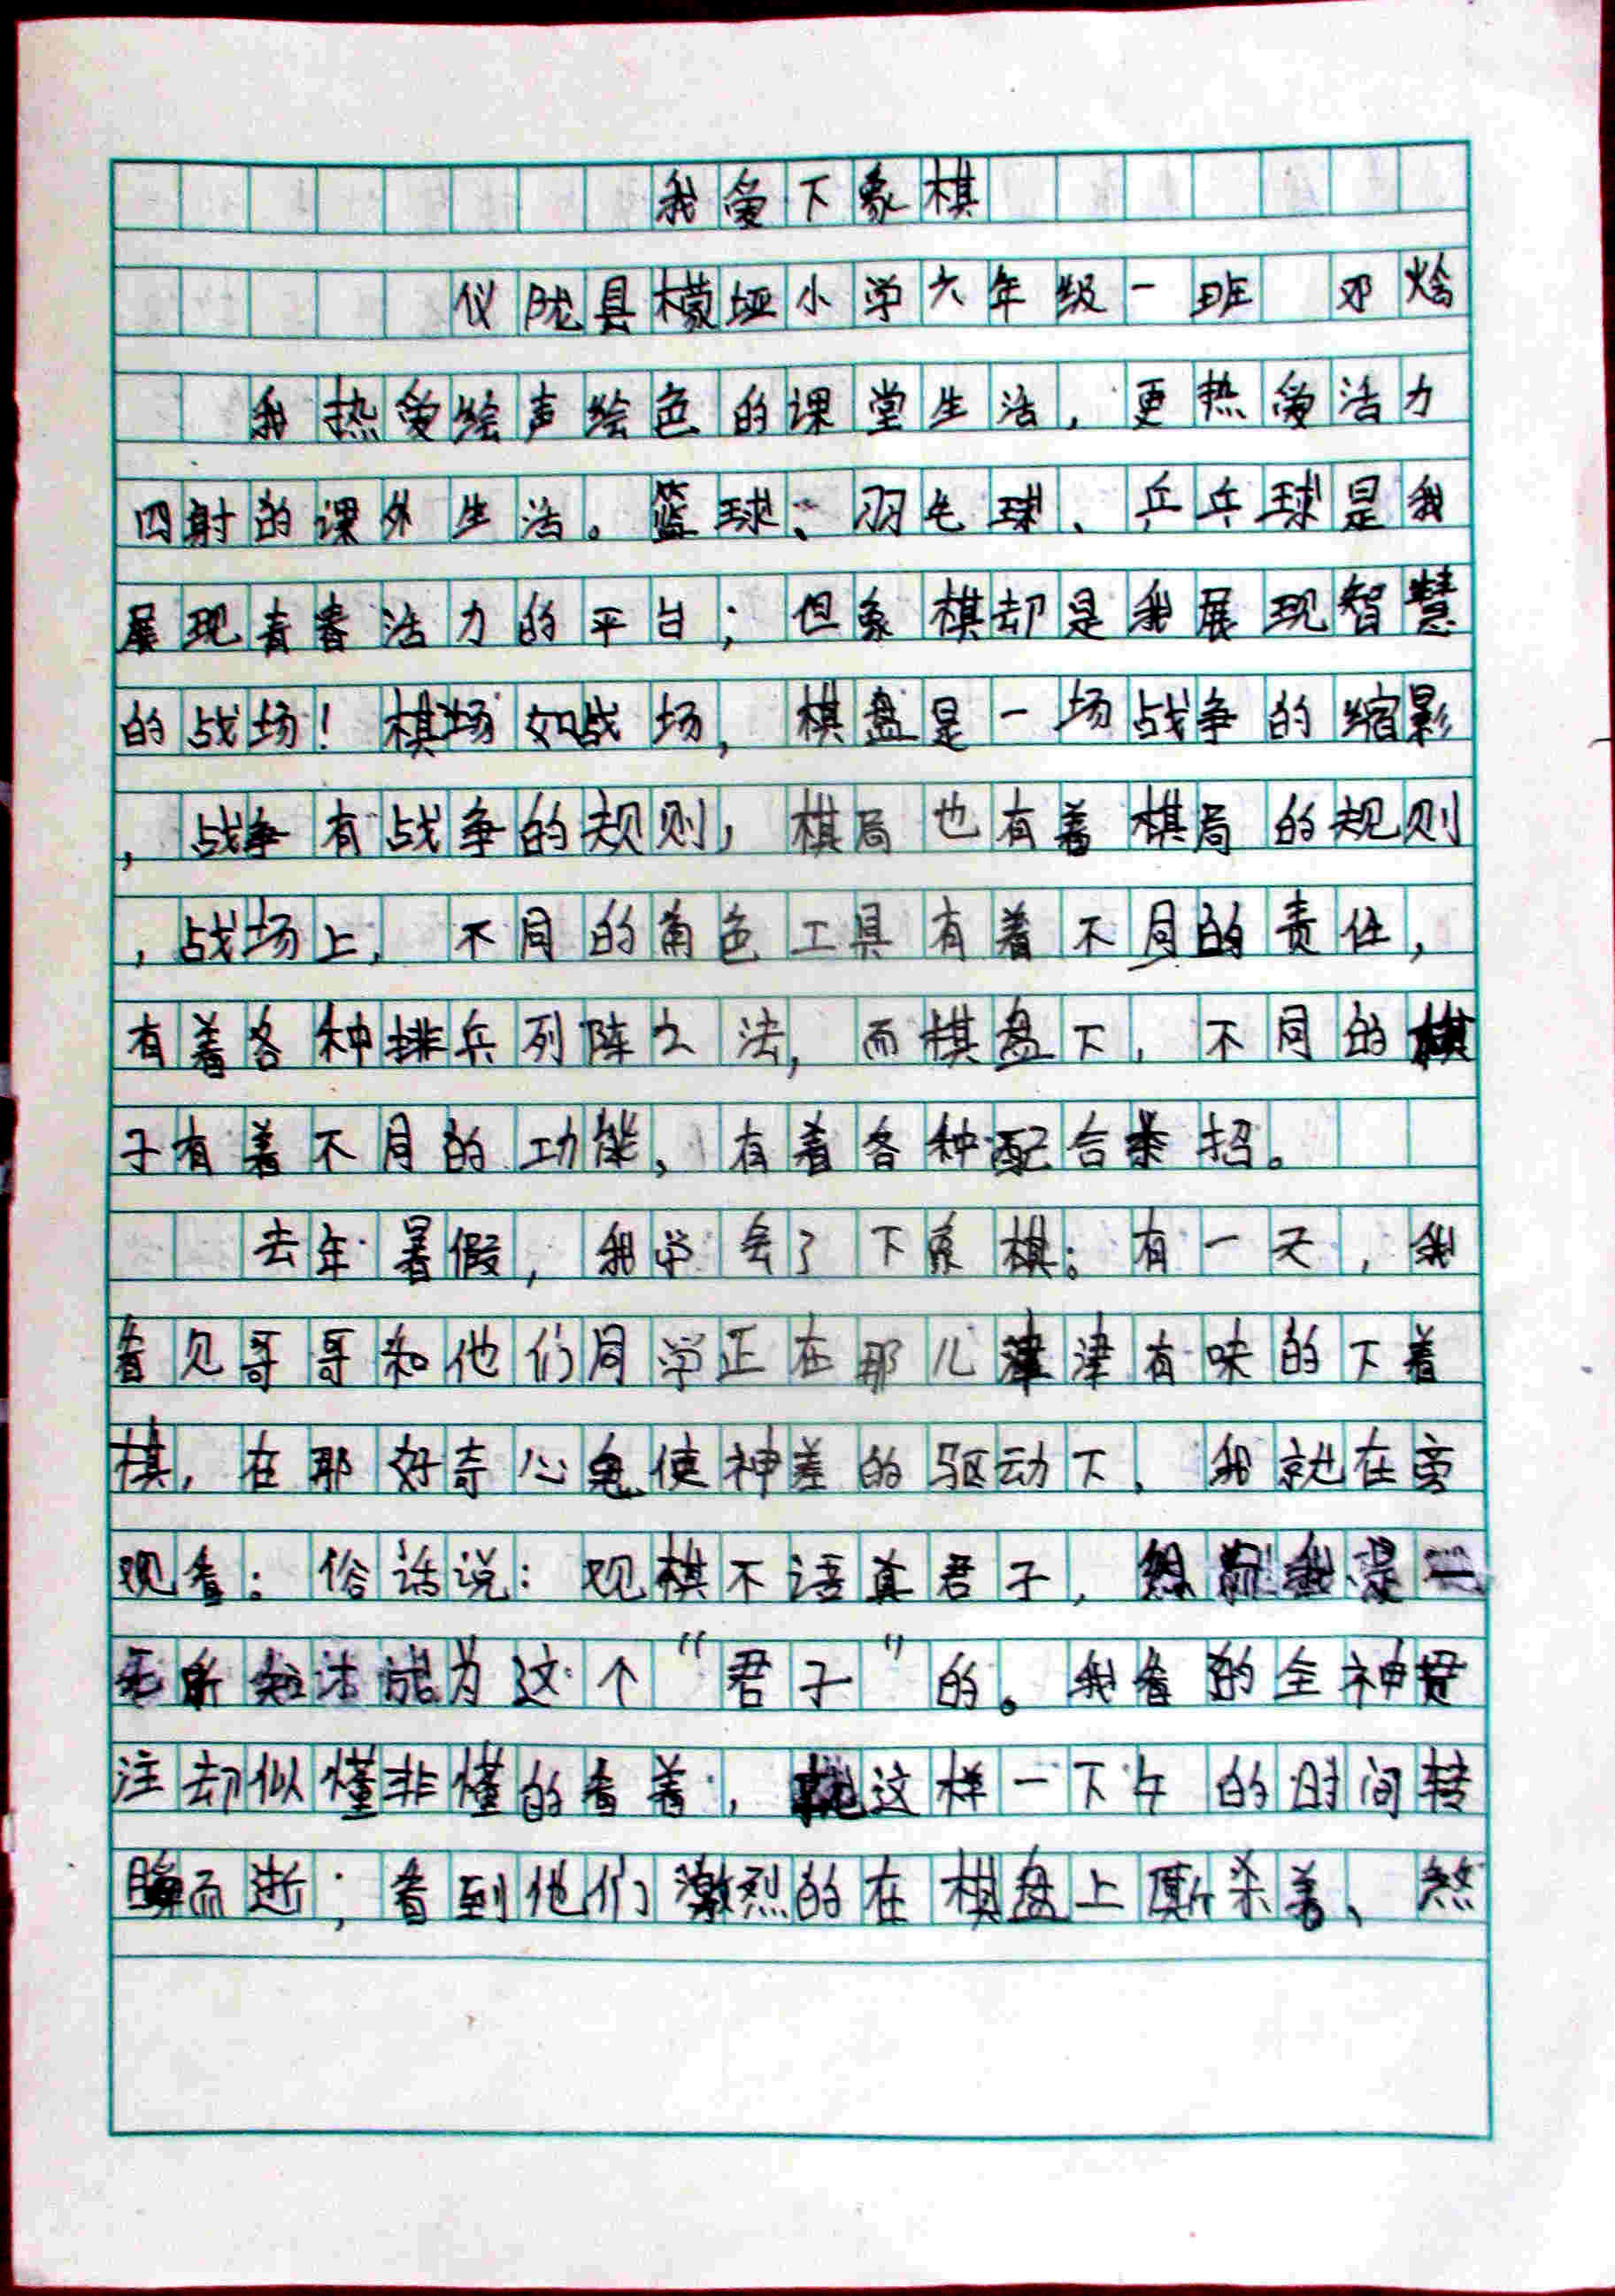 我爱下象棋
仪陇县檬垭小学六年级一班 邓烩
我热爱绘声绘色的课堂生活，更热爱活力
四射的课外生活。篮球、羽毛球、乒乓球是我
展现青春活力的平台；但象棋却是我展现智慧
的战场！棋场如战场，棋盘是一场战争的缩影
，战争有战争的规则，棋局也有着棋局的规则
，战场上，不同的角色工具有着不同的责任，
有着各种排兵列阵之法，而棋盘下，不同的棋
子有着不同的功能，有着各种配合类招。
去年暑假，我学会了下象棋；有一天，我
看见哥哥和他们同学正在那儿津津有味的下着
棋，在那好奇心鬼使神差的驱动下，我就在旁
观看；俗话说：观棋不语真君子，然而我是一
无所知法成为这个“君子”的。我看的全神贯
注却似懂非懂的看着，就这样一下午的时间转
瞬而逝；看到他们激烈的在棋盘上厮杀着、煞